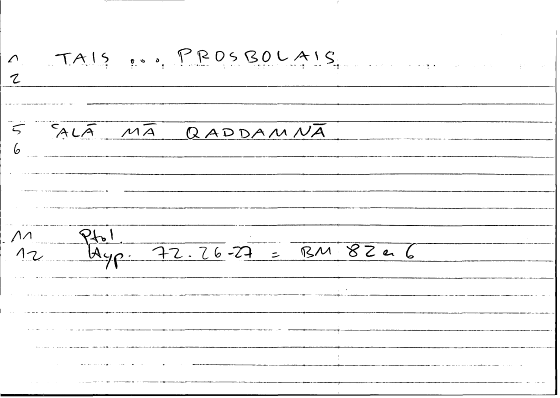 1 TAIS ... PROSBOLAIS
2
5 ʿALĀ MĀ QADDAMNĀ
6
11 Ptol.
12 Hyp. 72.26-27 = BM 82 a 6